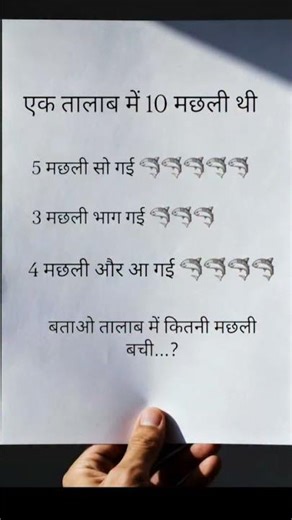 एक तालाब में 10 मछली थी
5 मछली सो गई
3 मछली भाग गई
4 मछली और आ गई
बताओ तालाब में कितनी मछली
बची...?